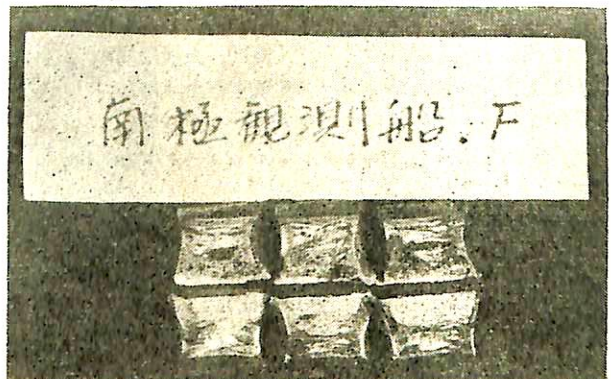 南極観測船.F